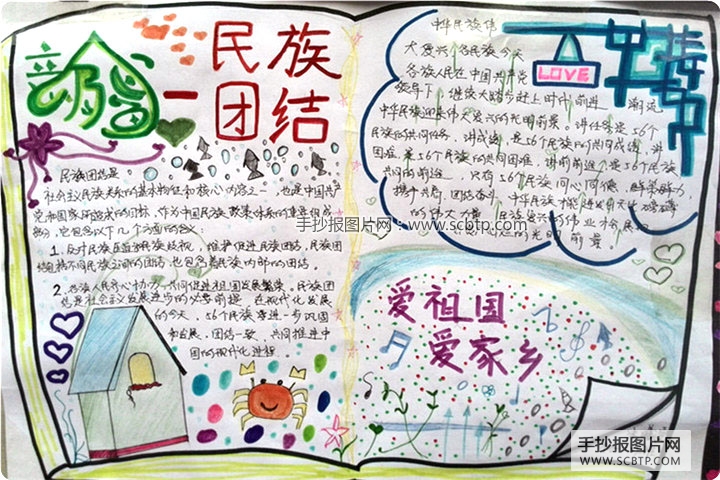 民族
团结
民族团结是
社会主义民族关系的基本特征和核心内容之一，也是中国共产
党和国家所追求的目标，作为中国民族政策体系的重要组成
部分，它包含以下几个方面的含义：
1. 反对民族压迫和民族歧视，维护和促进民族团结，民族团
结包括不同民族之间的团结，也包含着民族内部的团结。
2. 各族人民齐心协力，共同促进祖国发展繁荣。民族团
结是社会主义发展进步的必要前提，在现代化发展
的今天，56个民族要进一步巩固
和发展，团结一致，共同推进中
国的现代化进程
中华民族伟
大复兴，各民族今天
各族人民在中国共产党
领导下，继续大踏步赶上时代前进
潮流
中华民族迎来伟大复兴的光明前景。讲任务是56个
民族的共同任务，讲成就，是56个民族的共同成就，讲
困难，是56个民族的共同困难，讲前前途，是56个民族
共同的前途，只有56个民族同心同德，群策群力，
携手共肩，团结奋斗，中华民族才能
的伟大力量
的光明前景。
LOVE
爱祖国
爱家乡
手抄报图片网：www.scbtp.com
手抄报图片网
WWW.SCBTP.COM